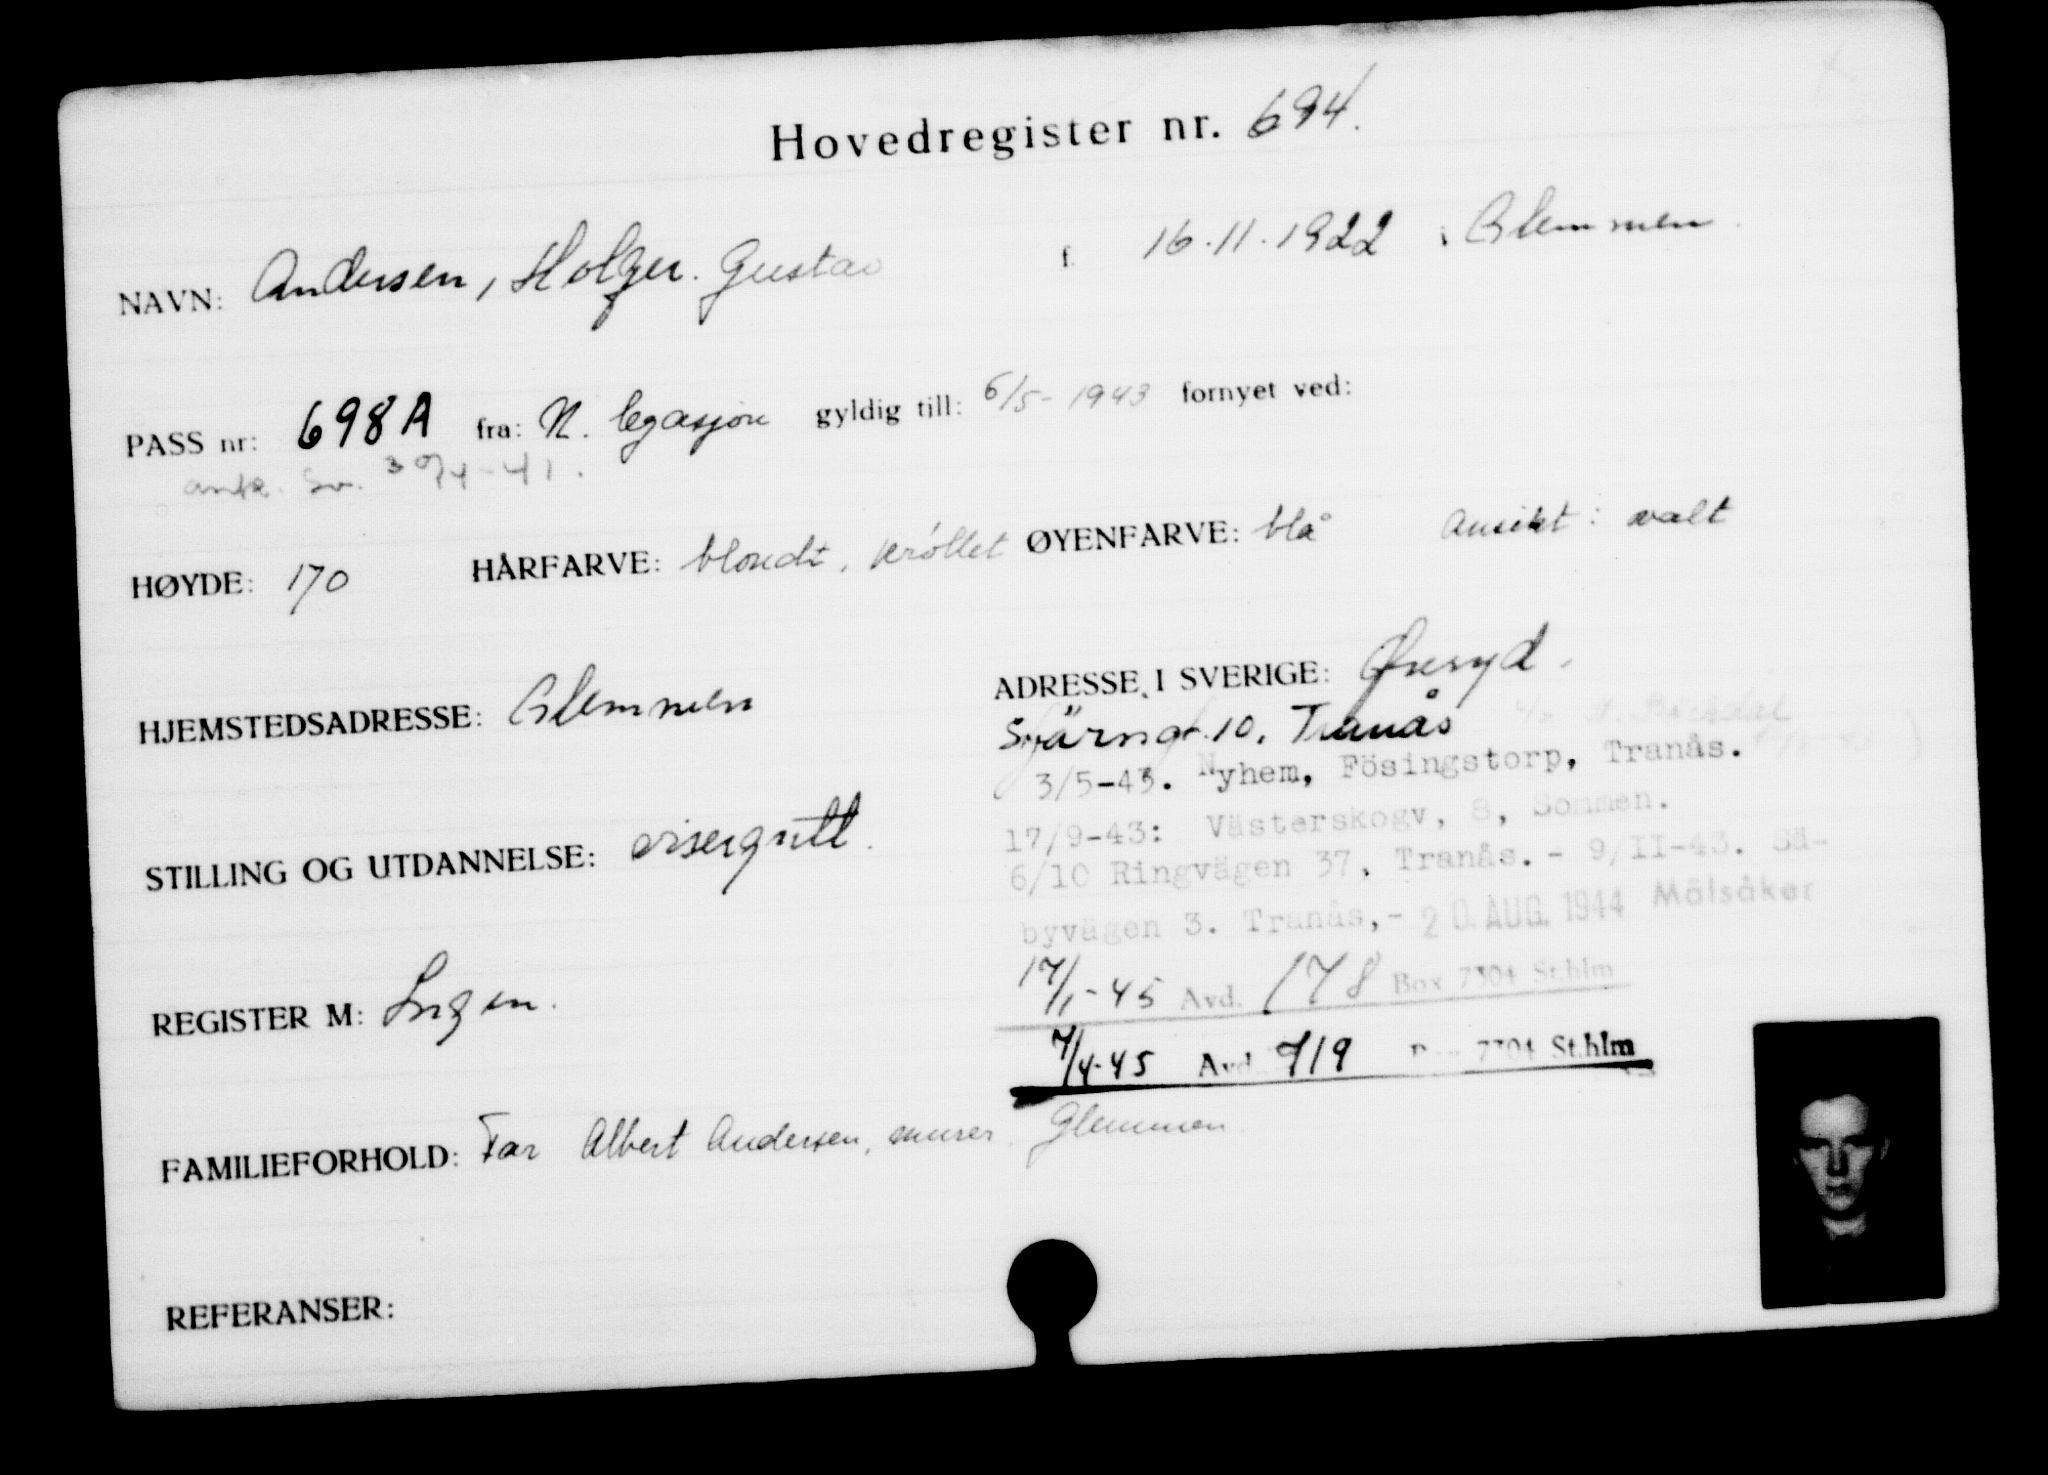 Hovedregister nr. 694.
NAVN: Andersen, Holger Gustav f. 16.11.1922 i Glemmen
PASS nr: 698A fra: N. legasjon gyldig till: 6/5-1943 fornyet ved:
ank. Sv. 30/4-41.
HØYDE: 170 HÅRFARVE: blondt, krøllet ØYENFARVE: blå Ansikt: ovalt
HJEMSTEDSADRESSE: Glemmen ADRESSE I SVERIGE: Øreryd.
10, Tranås
3/5-43. Nyhem, Fösingstorp, Tranås.
17/9-43: Västerskogv, 8, Sommen.
STILLING OG UTDANNELSE: visergutt.
6/10 Ringvägen 37, Tranås. - 9/II-43. Sä-
byvägen 3. Tranås,- 20. AUG. 1944 Mälsåker
17/1-45 Avd. 178 Box 7304 St.hlm
REGISTER M: Ingen.
7/4-45 Avd. 719 7304 St.hlm
FAMILIEFORHOLD: Far Albert Andersen, murer, Glemmen
REFERANSER: